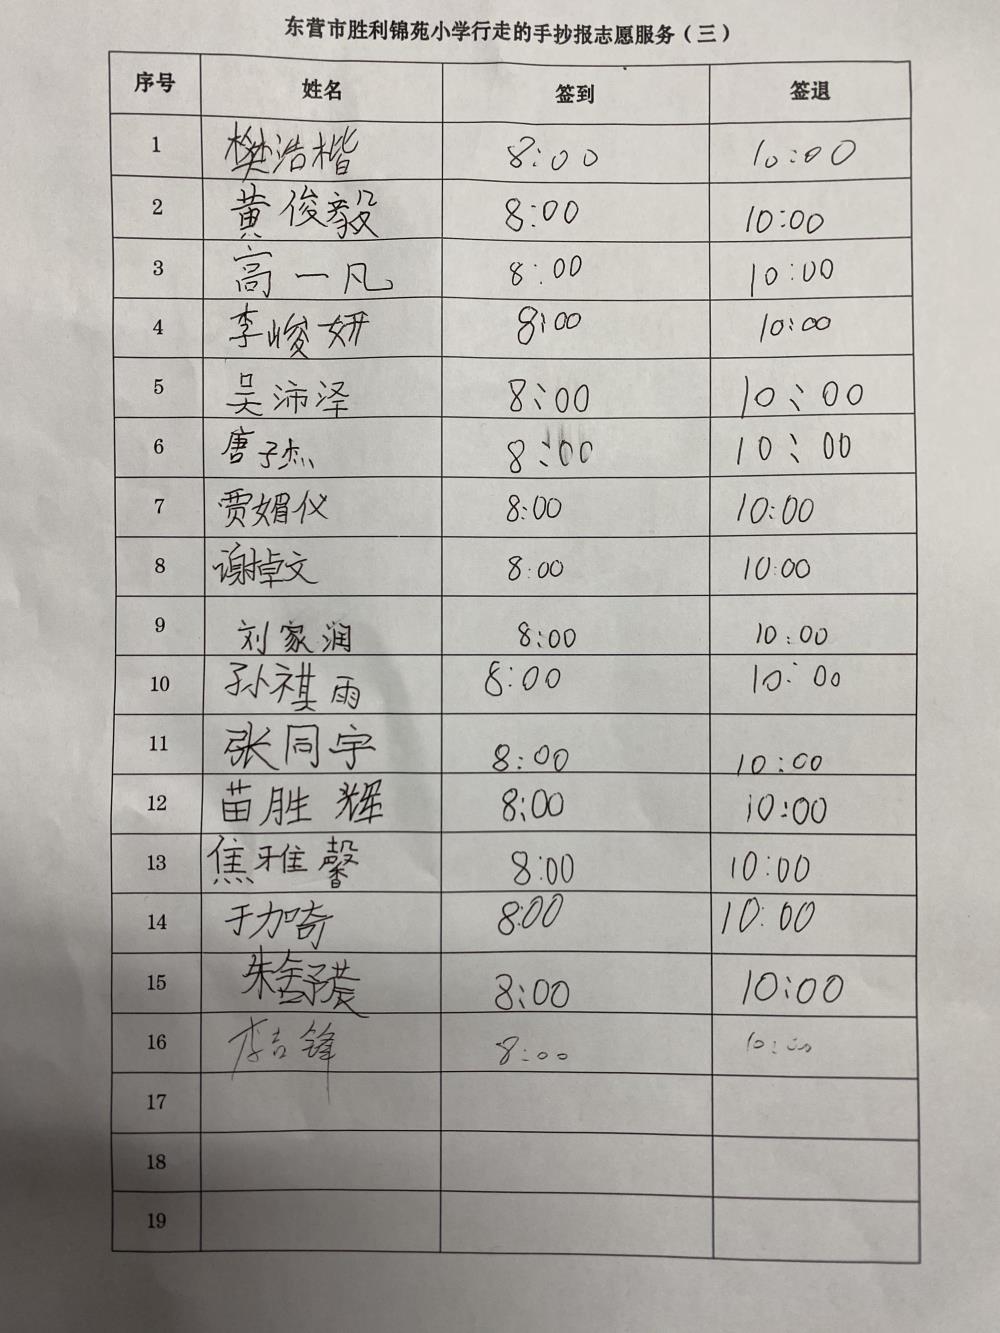 东营市胜利锦苑小学行走的手抄报志愿服务（三）
序号 姓名 签到 签退
1 樊浩楷 8:00 10:00
2 黄俊毅 8:00 10:00
3 高一凡 8:00 10:00
4 李峻妍 8:00 10:00
5 吴沛泽 8:00 10:00
6 唐子杰 8:00 10:00
7 贾媚仪 8:00 10:00
8 谢掉文 8:00 10:00
9 刘家润 8:00 10:00
10 孙祺雨 8:00 10:00
11 张同宇 8:00 10:00
12 苗胜辉 8:00 10:00
13 焦雅馨 8:00 10:00
14 于加奇 8:00 10:00
15 朱 8:00 10:00
16 李吉锋 8:00 10:00
17
18
19